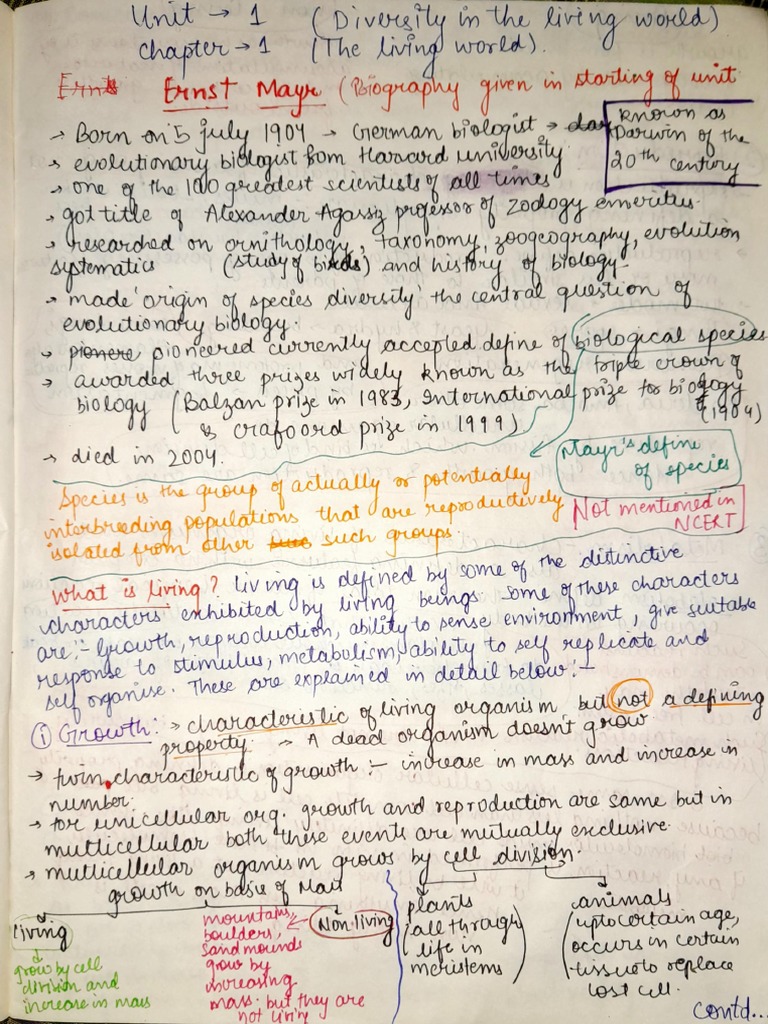 Unit → 1 (Diversity in the living world)
chapter → 1 (The living world).
Ernst Mayr (Biography given in starting of unit
→ Born on 5 july 1904 → German biologist →
known as
Darwin of the
20th century
→ evolutionary biologist from Harvard university
→ one of the 100 greatest scientists of all times
→ got title of Alexander Agassiz professor of zoology emeritus.
→ researched on ornithology, taxonomy, zoogeography, evolution
systematics (study of birds) and history of biology
→ made 'origin of species diversity' the central question of
evolutionary biology.
→ pionere pioneered currently accepted define of biological species
→ awarded three prizes widely known as the triple crown of
biology (Balzan prize in 1983, International prize for biology
(1994)
& crafoord prize in 1999)
→ died in 2004.
Mayr's define
of species
Species is the group of actually or potentially
interbreeding populations that are reproductively
isolated from other such groups.
Not mentioned in
NCERT
What is living? Living is defined by some of the distinctive
characters exhibited by living beings. Some of these characters
are :- Growth, reproduction, ability to sense environment, give suitable
response to stimulus, metabolism, ability to self replicate and
self organise. These are explained in detail below :-
① Growth: → characteristic of living organism but not a defining
property. → A dead organism doesn't grow
→ twin characteristic of growth :- increase in mass and increase in
number.
→ for unicellular org. growth and reproduction are same but in
multicellular both these events are mutually exclusive.
→ multicellular organism grows by cell division.
growth on basis of
living
grow by cell
division and
increase in mass
Non living
mountains,
boulders,
sand mounds
grow by
increasing
mass. but they are
not living
plants
(all through
life in
meristems)
animals
(upto certain age,
occurs in certain
tissue to replace
lost cell.)
contd...